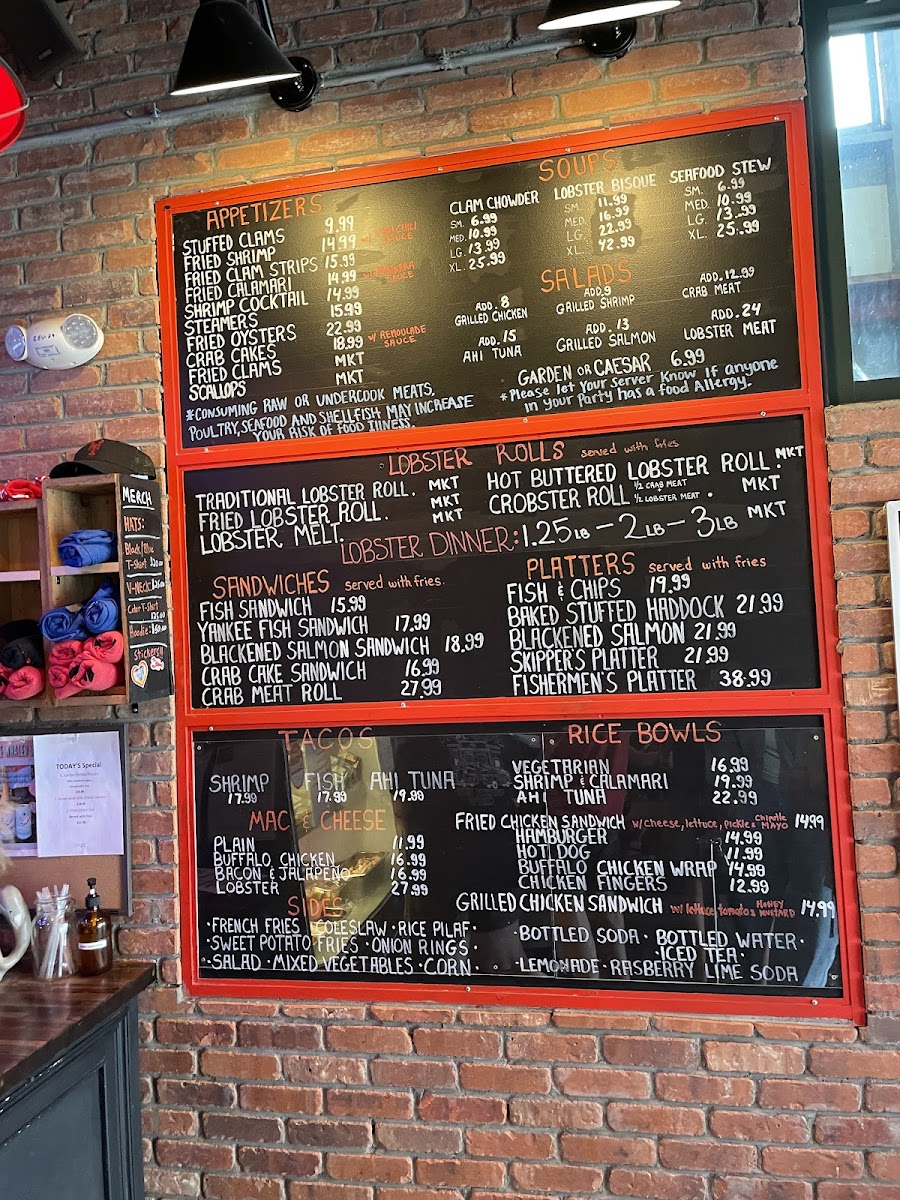 APPETIZERS
STUFFED CLAMS 9.99
FRIED SHRIMP 14.99 CHILI SAUCE
FRIED CLAM STRIPS 15.99
FRIED CALAMARI 14.99 SAUCE
SHRIMP COCKTAIL 14.99
STEAMERS 15.99
FRIED OYSTERS 22.99
CRAB CAKES 18.99 W/ REMOULADE SAUCE
FRIED CLAMS MKT
SCALLOPS MKT
*CONSUMING RAW OR UNDERCOOK MEATS,
POULTRY, SEAFOOD AND SHELLFISH MAY INCREASE
YOUR RISK OF FOOD ILLNESS.
SOUPS
CLAM CHOWDER
SM. 6.99
MED. 10.99
LG. 13.99
XL. 25.99
LOBSTER BISQUE
SM. 11.99
MED. 16.99
LG. 22.99
XL. 42.99
SEAFOOD STEW
SM. 6.99
MED. 10.99
LG. 13.99
XL. 25.99
SALADS
ADD. 8
GRILLED CHICKEN
ADD. 9
GRILLED SHRIMP
ADD. 12.99
CRAB MEAT
ADD. 15
AHI TUNA
ADD. 13
GRILLED SALMON
ADD. 24
LOBSTER MEAT
GARDEN OR CAESAR 6.99
*Please let Your Server Know if anyone
in your Party has a food Allergy.
LOBSTER ROLLS served with fries
TRADITIONAL LOBSTER ROLL. MKT
FRIED LOBSTER ROLL. MKT
LOBSTER MELT. MKT
HOT BUTTERED LOBSTER ROLL. MKT
CROBSTER ROLL 1/2 CRAB MEAT 1/2 LOBSTER MEAT. MKT
LOBSTER DINNER: 1.25 LB - 2 LB - 3 LB MKT
SANDWICHES served with fries.
FISH SANDWICH 15.99
YANKEE FISH SANDWICH 17.99
BLACKENED SALMON SANDWICH 18.99
CRAB CAKE SANDWICH 16.99
CRAB MEAT ROLL 27.99
PLATTERS served with fries
FISH & CHIPS 19.99
BAKED STUFFED HADDOCK 21.99
BLACKENED SALMON 21.99
SKIPPER'S PLATTER 21.99
FISHERMEN'S PLATTER 38.99
TACOS
SHRIMP FISH AHI TUNA
17.99 17.99 19.99
MAC & CHEESE
PLAIN 11.99
BUFFALO CHICKEN 16.99
BACON & JALAPEÑO 16.99
LOBSTER 27.99
SIDES
·FRENCH FRIES ·COLESLAW ·RICE PILAF·
·SWEET POTATO FRIES ·ONION RINGS·
·SALAD ·MIXED VEGETABLES ·CORN·
RICE BOWLS
VEGETARIAN 16.99
SHRIMP & CALAMARI 19.99
AHI TUNA 22.99
FRIED CHICKEN SANDWICH w/ cheese, lettuce, pickle & Chipotle MAYO 14.99
HAMBURGER 14.99
HOT DOG 11.99
BUFFALO CHICKEN WRAP 14.99
CHICKEN FINGERS 12.99
GRILLED CHICKEN SANDWICH w/ lettuce tomato & HONEY MUSTARD 14.99
·BOTTLED SODA· BOTTLED WATER·
·ICED TEA·
·LEMONADE· RASBERRY LIME SODA
MERCH
HATS:
Black/Blue
T-Shirt
V-NECK:
Color T-Shirt
Hoodie:
Stickers!!
TODAY'S Special